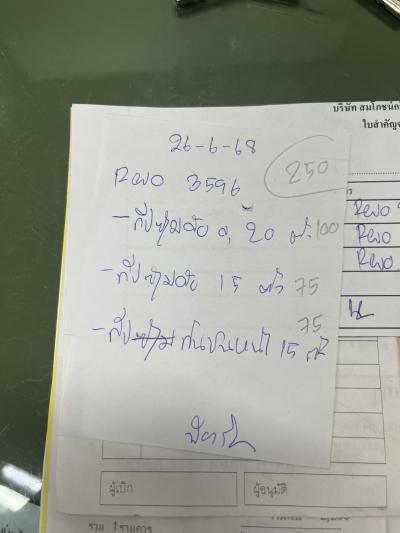 บริษัท สมโภชน์ก
ใบสำคัญจ
26-6-68
250
Revo 3596
Revo
- กิ๊ปซุ้มล้อ 20 ตัว 100
Revo
- กิ๊ปซุ้มล้อ 15 ตัว 75
Revo
75
- กิ๊ป กันชนหน้า 15 ตัว
ผู้เบิก
ผู้อนุมัติ
รวม 1 รายการ